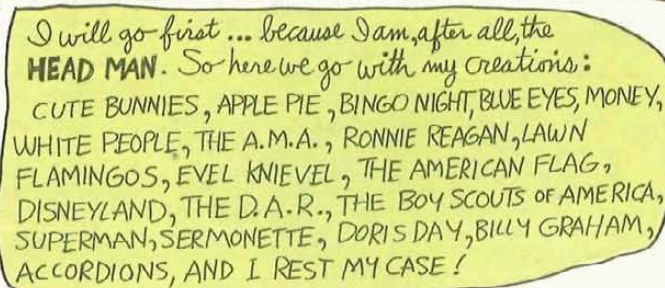 I will go first ... because I am, after all, the
HEAD MAN. So here we go with my creations:
CUTE BUNNIES, APPLE PIE, BINGO NIGHT, BLUE EYES, MONEY,
WHITE PEOPLE, THE A.M.A., RONNIE REAGAN, LAWN
FLAMINGOS, EVEL KNIEVEL, THE AMERICAN FLAG,
DISNEYLAND, THE D.A.R., THE BOY SCOUTS OF AMERICA,
SUPERMAN, SERMONETTE, DORIS DAY, BILLY GRAHAM,
ACCORDIONS, AND I REST MY CASE!